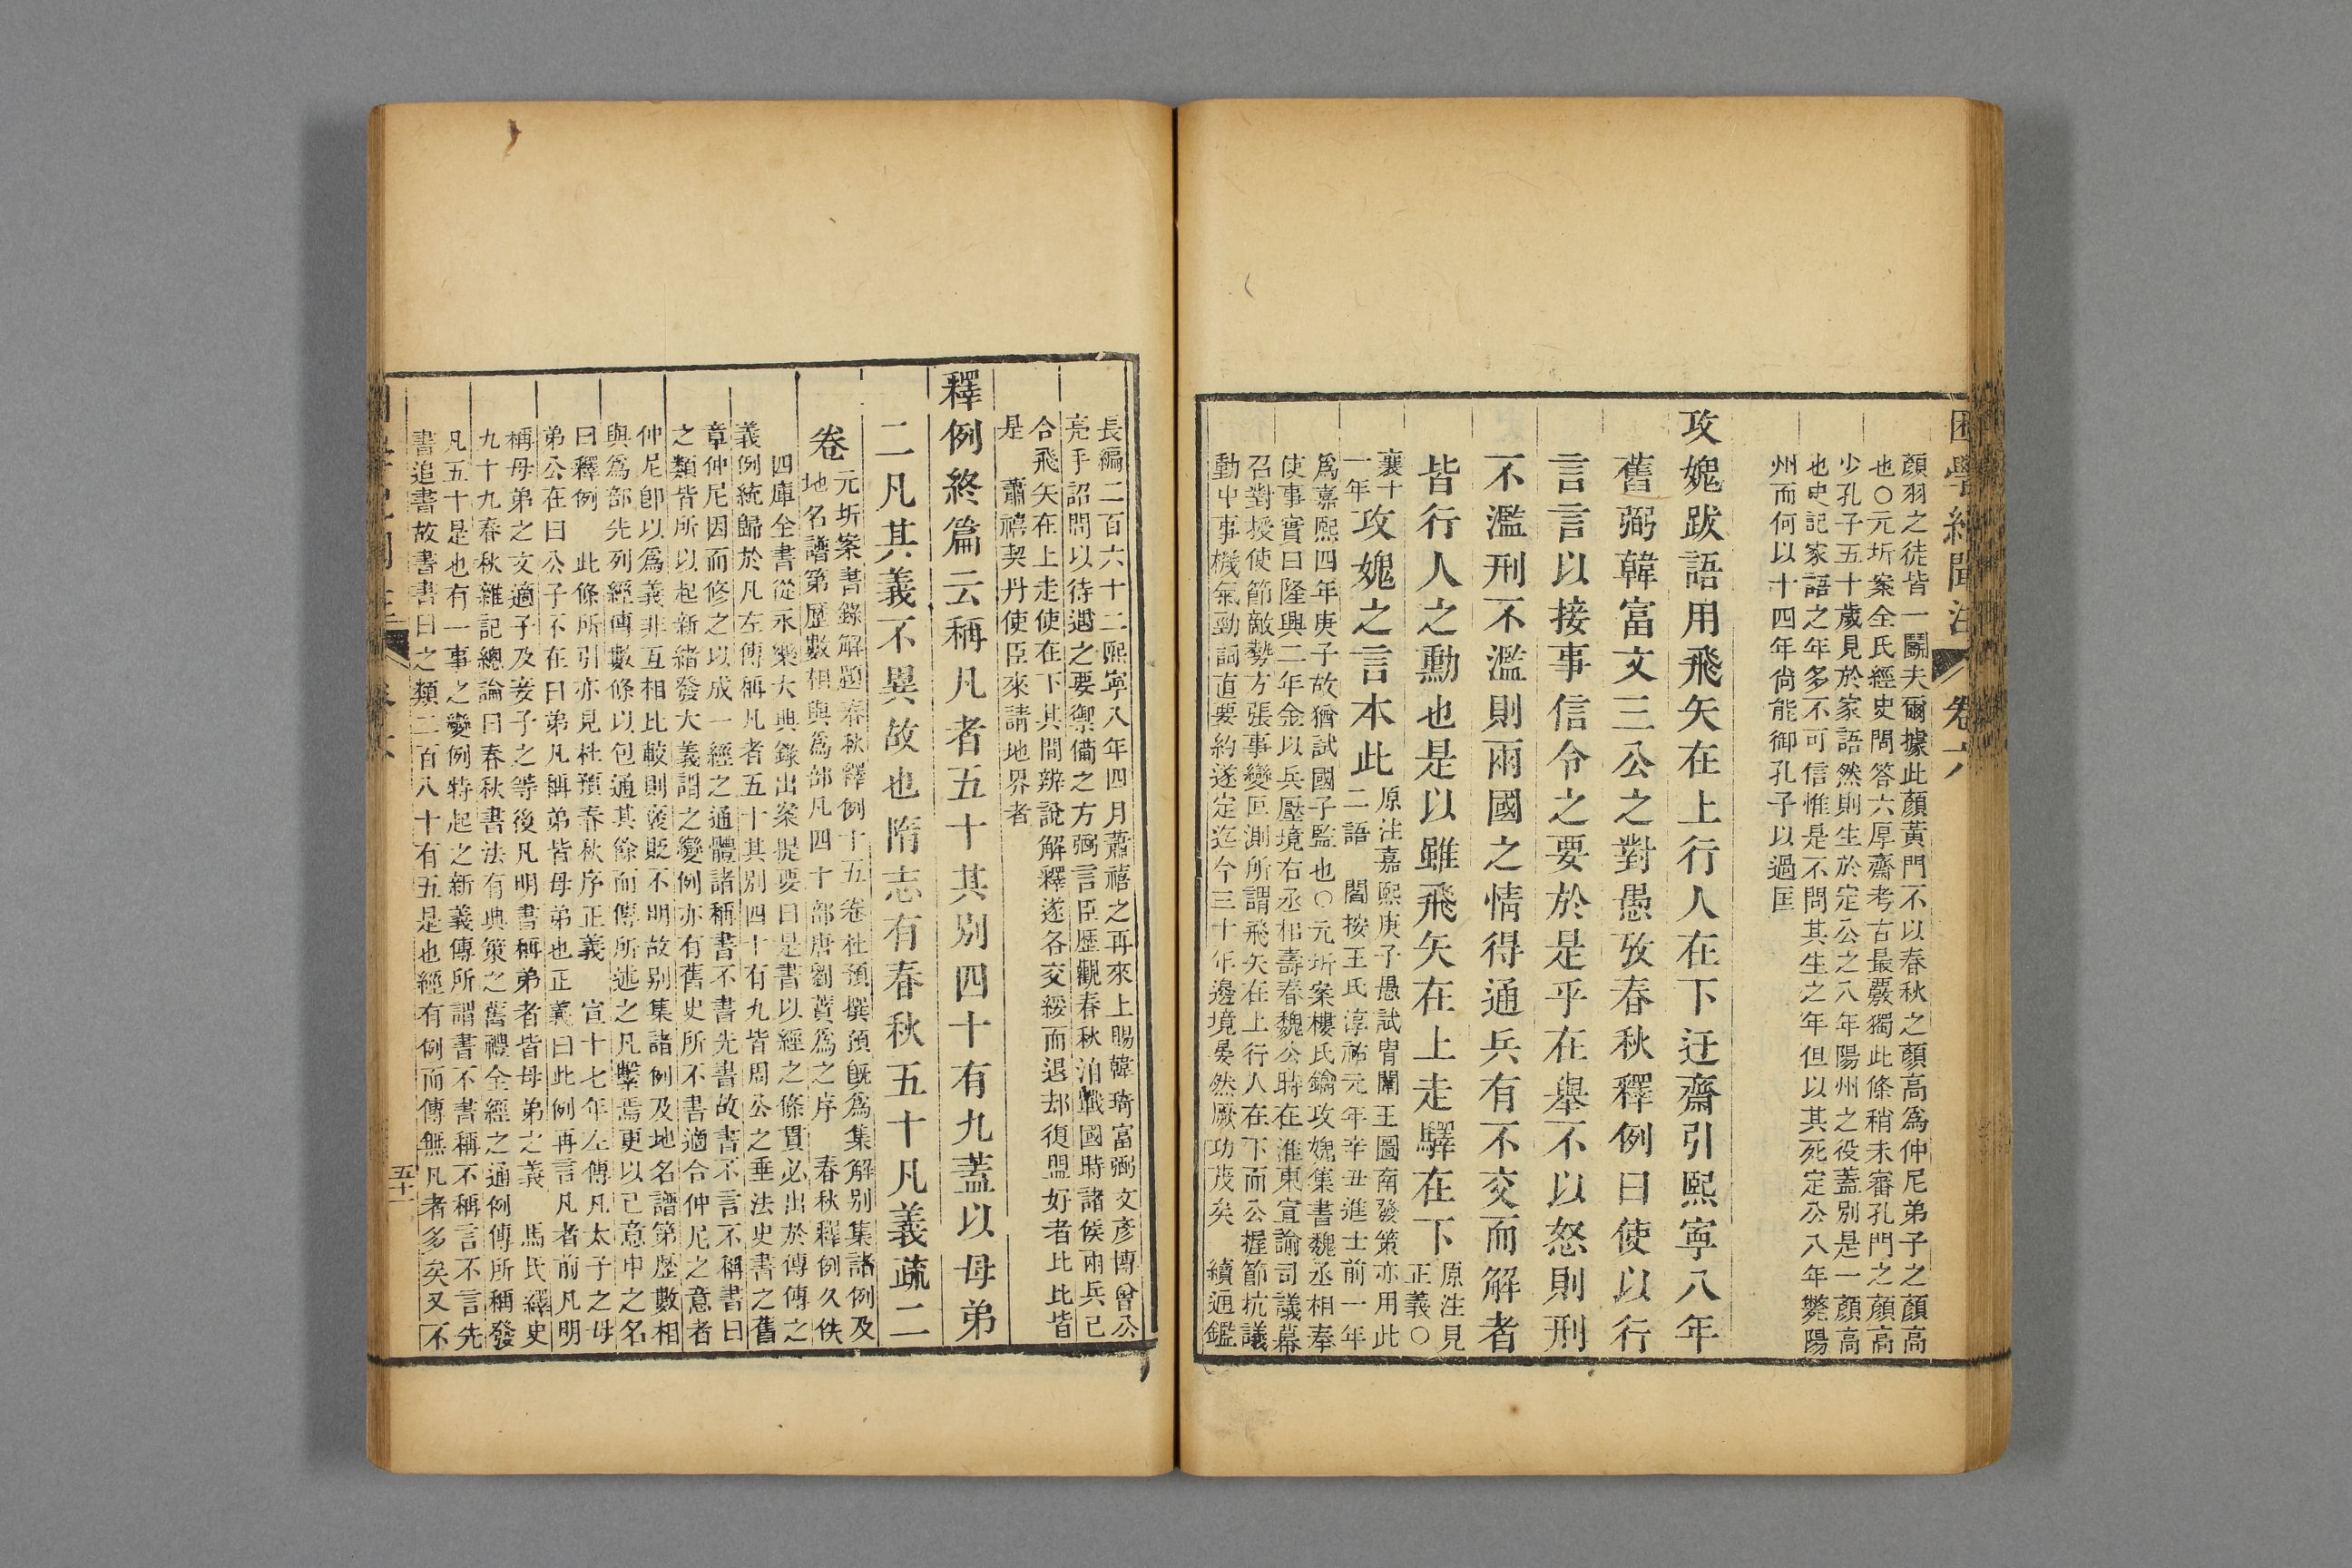 困學紀聞注 卷六
顏羽之徒皆一鬭夫爾據此顏黃門不以春秋之顏高爲仲尼弟子之顏高
也○元圻案全氏經史問答六厚齋考古最覈獨此條稍未審孔門之顏高
少孔子五十歲見於家語然則生於定公之八年陽州之役蓋別是一顏高
也史記家語之年多不可信惟是不問其生之年但以其死定公八年斃陽
州而何以十四年尚能御孔子以過匡
攻媿跋語用飛矢在上行人在下迂齋引熙寧八年
舊弼韓富文三公之對愚攷春秋釋例曰使以行
言言以接事信令之要於是乎在舉不以怒則刑
不濫刑不濫則兩國之情得通兵有不交而解者
皆行人之勳也是以雖飛矢在上走驛在下原注見正義○
襄十一年攻媿之言本此二語原注嘉熙庚子愚試胄闈王圖南發策亦用此 閻按王氏淳祐元年辛丑進士前一年
爲嘉熙四年庚子故猶試國子監也○元圻案樓氏鑰攻媿集書魏丞相奉
使事實曰隆興二年金以兵壓境右丞相壽春魏公時在淮東宣諭司議幕
召對授使節敵勢方張事變叵測所謂飛矢在上行人在下而公握節抗議
動中事機氣勁詞直要約遂定迄今三十年邊境晏然厥功茂矣 續通鑑
長編二百六十二熙寧八年四月蕭禧之再來上賜韓琦富弼文彥博曾公
亮手詔問以待遇之要禦備之方弼言臣歷觀春秋洎戰國時諸侯兩兵已
合飛矢在上走使在下其間辨說解釋遂各交綏而退却復盟好者比比皆
是 蕭禧契丹使臣來請地界者
釋例終篇云稱凡者五十其別四十有九蓋以母弟
二凡其義不異故也隋志有春秋五十凡義疏二
卷元圻案書錄解題春秋釋例十五卷杜預撰預旣爲集解別集諸例及
地名譜第歷數相與爲部凡四十部唐劉蕡爲之序 春秋釋例久佚
四庫全書從永樂大典錄出案提要曰是書以經之條貫必出於傳傳之
義例統歸於凡左傳稱凡者五十其別四十有九皆周公之垂法史書之舊
章仲尼因而修之以成一經之通體諸稱書不書先書故書不言不稱書曰
之類皆所以起新緒發大義謂之變例亦有舊史所不書適合仲尼之意者
仲尼卽以爲義非互相比較則襃貶不明故別集諸例及地名譜第歷數相
與爲部先列經傳數條以包通其餘而傳所述之凡繫焉更以己意申之名
曰釋例 此條所引亦見杜預春秋序正義 宣十七年左傳凡太子之母
弟公在曰公子不在曰弟凡稱弟皆母弟也正義曰此例再言凡者前凡明
稱母弟之文適子及妾子之等後凡明書稱弟者皆母弟之義 馬氏繹史
九十九春秋雜記總論曰春秋書法有典策之舊禮全經之通例傳所稱發
凡五十是也有一事之變例特起之新義傳所謂書不書稱不稱言不言先
書追書故書書曰之類二百八十有五是也經有例而傳無凡者多矣又不
五十一